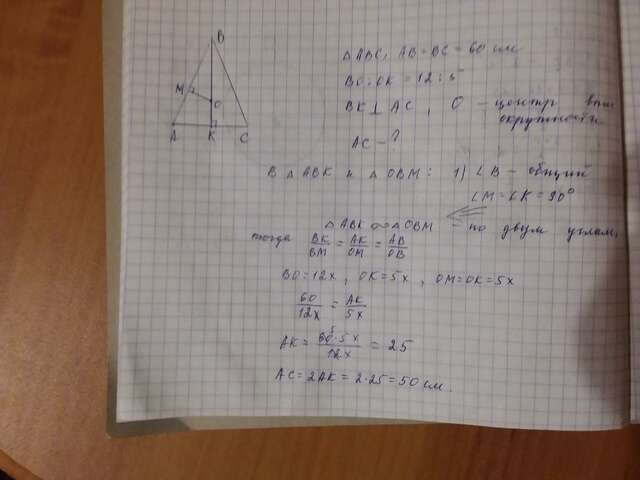 B
M
O
A
K
C
△ABC, AB=BC=60 см
BO:OK=12:5
BK⊥AC, O - центр впис
окружности
AC-?
В △ABK и △OBM: 1) ∠B - общий
∠M=∠K=90°
△ABK ∾ △OBM - по двум углам,
тогда BK/BM = AK/OM = AB/OB
BO=12x, OK=5x, OM=OK=5x
60/12x = AK/5x
AK = 60·5x/12x = 25
AC=2AK=2·25=50 см.